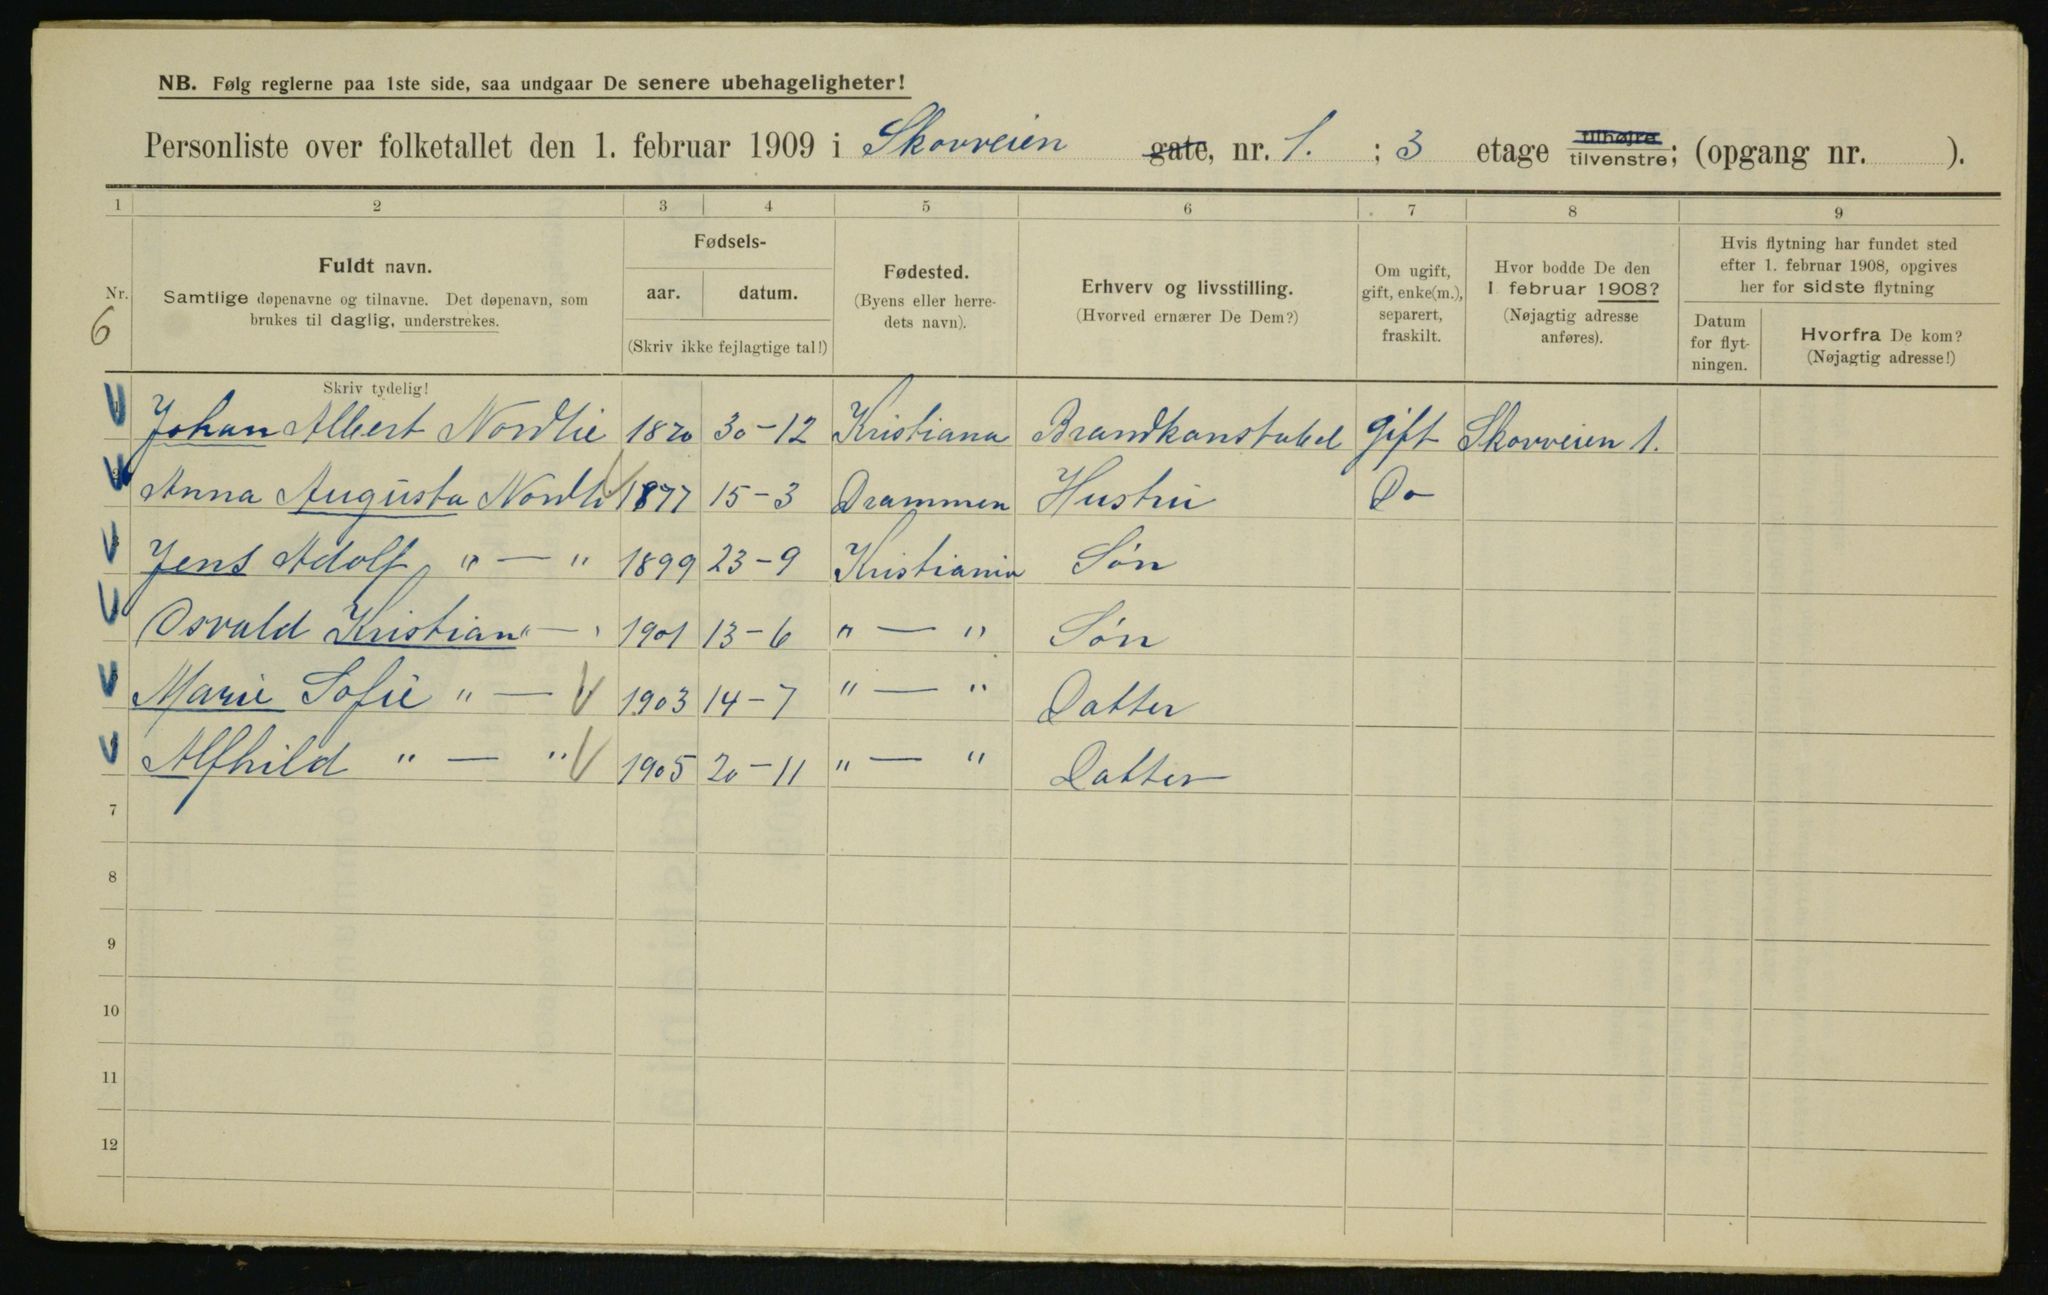 NB. Følg reglerne paa 1ste side, saa undgaar De senere ubehageligheter!
Personliste over folketallet den 1. februar 1909 i Skovveien gate, nr. 1. ; 3 etage tilhøjre tilvenstre; (opgang nr. ).
1 2 3 4 5 6 7 8 9
Nr.
6
Fuldt navn.
Samtlige døpenavne og tilnavne. Det døpenavn, som
brukes til daglig, understrekes.
Skriv tydelig!
Fødsels-
aar. datum.
(Skriv ikke fejlagtige tal!)
Fødested.
(Byens eller herre-
dets navn).
Erhverv og livsstilling.
(Hvorved ernærer De Dem?)
Om ugift,
gift, enke(m.),
separert,
fraskilt.
Hvor bodde De den
1 februar 1908?
(Nøjagtig adresse
anføres).
Hvis flytning har fundet sted
efter 1. februar 1908, opgives
her for sidste flytning
Datum
for flyt-
ningen.
Hvorfra De kom?
(Nøjagtig adresse!)
Johan Albert Nordlie 1870 30-12 Kristiana Brandkonstabel gift Skovveien 1.
Anna Augusta Nordli 1877 15-3 Drammen Hustru Do
Jens Adolf " — " 1899 23-9 Kristiania Søn
Osvald Kristian " — " 1901 13-6 " — " Søn
Marie Sofie " — 1903 14-7 " — " Datter
Alfhild " — " 1905 20-11 " — " Datter
7
8
9
10
11
12